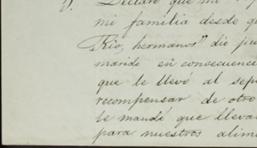 V. Declaro que mi
mi familia desde qu
"Rio, hermanos" dio pu
marido en consecuenc
que le llevé al sep
recompensar de otro
le mandé que lleva
para nuestros alim